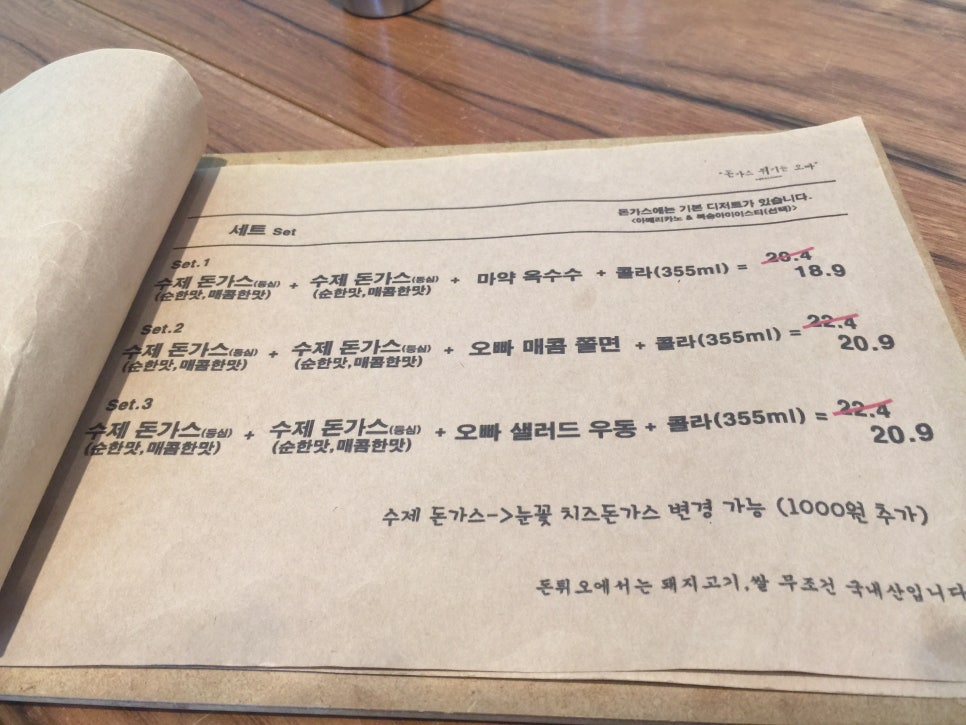 "돈가스 튀기는 오빠"
돈가스에는 기본 디저트가 있습니다.
<아메리카노 & 복숭아아이스티(선택)>
세트 Set
Set.1
수제 돈가스(등심) + 수제 돈가스(등심) + 마약 옥수수 + 콜라(355ml) = 20.4
(순한맛,매콤한맛) (순한맛,매콤한맛) 18.9
Set.2
수제 돈가스(등심) + 수제 돈가스(등심) + 오빠 매콤 쫄면 + 콜라(355ml) = 22.4
(순한맛,매콤한맛) (순한맛,매콤한맛) 20.9
Set.3
수제 돈가스(등심) + 수제 돈가스(등심) + 오빠 샐러드 우동 + 콜라(355ml) = 22.4
(순한맛,매콤한맛) (순한맛,매콤한맛) 20.9
수제 돈가스->눈꽃 치즈돈가스 변경 가능 (1000원 추가)
돈튀오에서는 돼지고기,쌀 무조건 국내산입니다